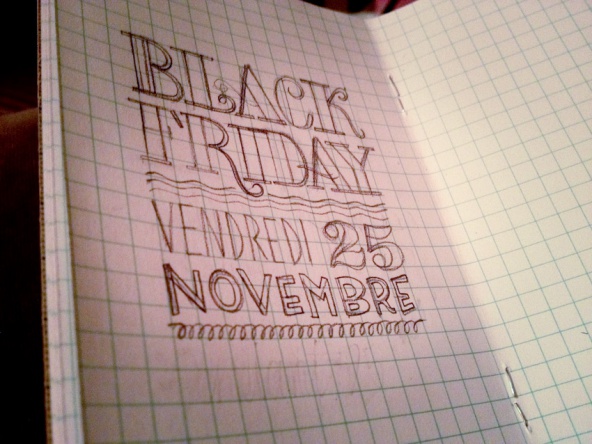 BLACK
FRIDAY
VENDREDI 25
NOVEMBRE